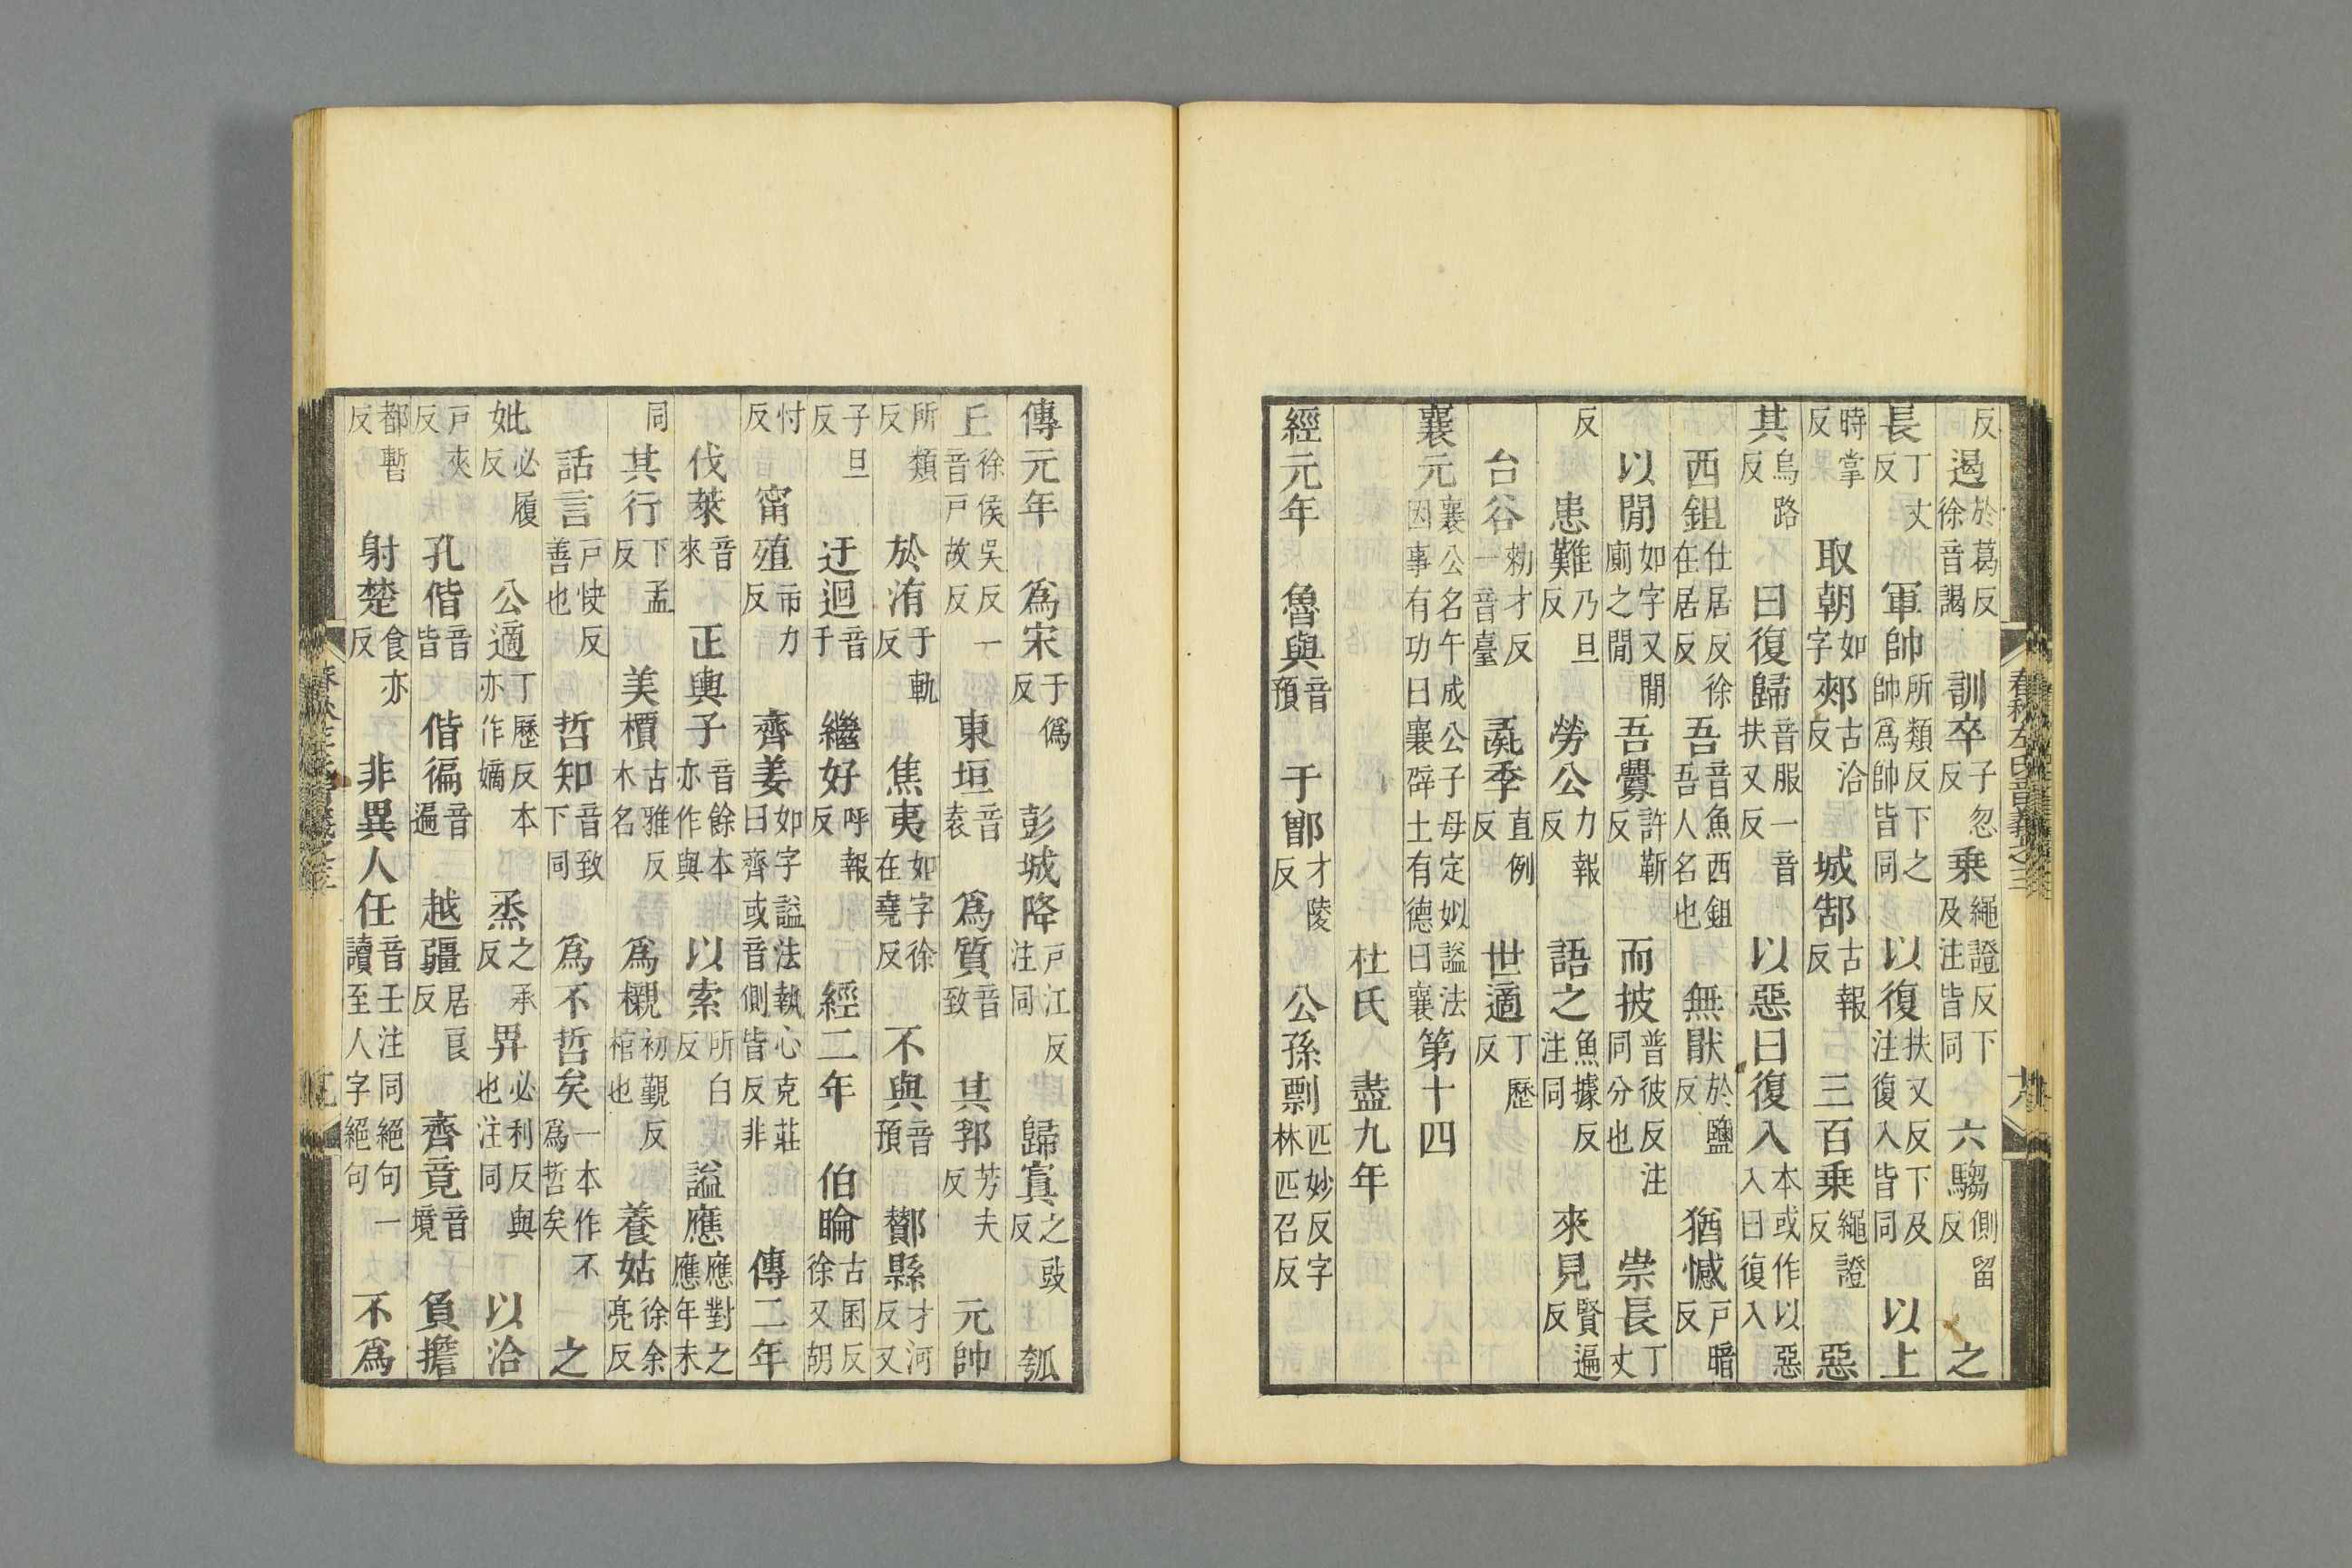 反遏於葛反徐音謁訓卒子忽反乗繩證反下及注皆同六騶側留反之
長丁丈反軍帥所類反下之帥為帥皆同以復扶又反下及注復入皆同以上
時掌反取朝如字郟古洽反城郜古報反三百乗繩證反惡
其烏路反曰復歸音服一音扶又反以惡曰復入本或作以惡入曰復入
西鉏仕居反徐在居反吾音魚西鉏吾人名也無猒於鹽反猶憾戶暗反
以閒如字又閒廁之閒吾釁許靳反而披普彼反注同分也崇長丁丈
反患難乃旦反勞公力報反語之魚據反注同來見賢遍反
台谷勑才反一音臺彘季直例反世適丁歷反
襄元襄公名午成公子母定姒謚法因事有功曰襄辟土有德曰襄第十四
杜氏盡九年
經元年魯與音預于鄫才陵反公孫剽匹妙反字林匹召反
傳元年為宋于偽反彭城降戶江反注同歸寘之豉反瓠
丘徐侯吳反一音戶故反東垣音袁為質音致其郛芳夫反元帥
所類反於洧于軌反焦夷如字徐在堯反不與音預酇縣才河反又
子旦反迂迴音于繼好呼報反經二年伯睔古困反徐又胡
忖反甯殖市力反齊姜如字謚法執心克莊曰齊或音側皆反非傳二年
伐萊音來正輿子音餘本亦作與以索所白反謚應應對之應年末
同其行下孟反美檟古雅反木名為櫬初覲反棺也養姑徐余亮反
話言戶快反善也哲知音致下同為不哲矣一本作不為哲矣之
妣必履反公適丁歷反本亦作嫡烝之承反畀必利反與也注同以洽
戶夾反孔偕音皆偕徧音遍越疆居良反齊竟音境負擔
都暫反射楚食亦反非異人任音壬注同絕句一讀至人字絕句不為